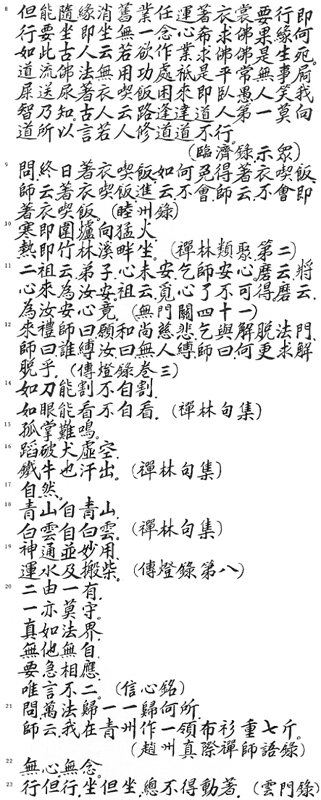 8 但能隨緣消舊業任運著衣裳要行即
行要坐即坐無一念心希求佛果緣何
如此古人云若欲作業求佛佛是生死
道流佛法無用功處秖是平常無事屙
屎送尿著衣喫飯困來即臥愚人笑我
智乃知。古人云路逢達道人第一莫向
道所以言若人修道道不行。
(臨濟錄示眾)
9 問終日著衣喫飯如何免得著衣喫飯
師云著衣喫飯進云不會師云不會即
著衣喫飯。(睦州錄)
10 寒即圍爐向猛火
熱即竹林溪畔坐。(禪林類聚第二)
11 二祖云弟子心未安乞師安心。磨云將
心來為汝安祖云覓心了不可得磨云
為汝安心竟。(無門關四十一)
12 來禮師曰願和尚慈悲乞與解脫法門
師曰誰縛汝曰無人縛師曰何更求解
脫乎。(傳燈錄卷三)
14 如刀能割不自割
如眼能看不自看。(禪林句集)
15 孤掌難鳴。
16 蹈破大虛空
鐵牛也汗出。(禪林句集)
17 自然。
18 青山自青山
白雲自白雲。(禪林句集)
19 神通並妙用
運水及搬柴。(傳燈錄第八)
20 二由一有
一亦莫守。
真如法界
無他無自
要急相應
唯言不二。(信心銘)
21 問萬法歸一一歸何所
師云我在青州作一領布衫重七斤。
(趙州真際禪師語錄)
22 無心無念。
23 行但行坐但坐總不得動著。(雲門錄)